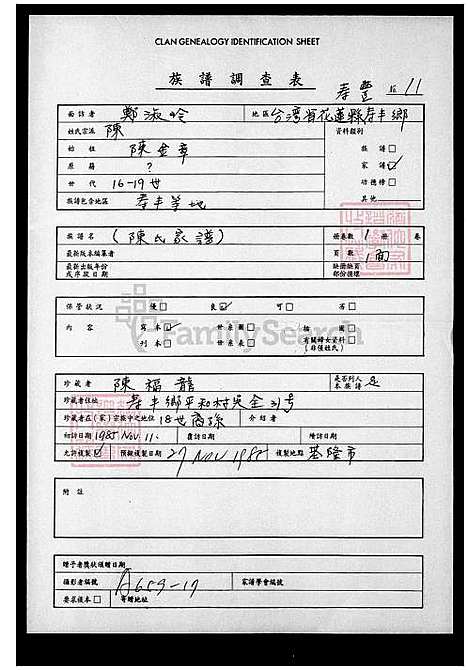 CLAN GENEALOGY IDENTIFICATION SHEET
族譜調查表
壽豐 11
面訪者 鄭淑玲 地區 台灣省花蓮縣壽丰鄉
姓氏宗派 陳 資料類別
始祖 陳金章 族譜□
原籍 ? 家譜☑
世代 16-19世 功德榜□
族譜包含地區 壽丰等地 其他
族譜名 (陳氏家譜) 冊卷數 1 冊 卷
最新版本編纂者 頁數 1面
最新出版年份 缺冊缺頁
或序跋日期 部份復瓊
保管狀況 優□ 良☑ 可□ 否□
內容 寫本☑ 世系圖□ 插圖□
刊本□ 世系表□ 有關婦女資料□
(非僅姓氏)
FamilySearch
珍藏者 陳福龍 是否列入本族譜 是
珍藏者住址 壽丰鄉平和村吳全31号
珍藏者在(家)宗族中之地位 18世裔孫 介紹者
初訪日期 1985 Nov. 11. 覆訪日期 續訪日期
允許複製☑ 預擬複製日期 27 NOV 1985 複製地點 基隆市
附註
贈予者獎狀頒贈日期
攝影者編號 A659-17 家譜學會編號
要求儀本□ 寄贈地址